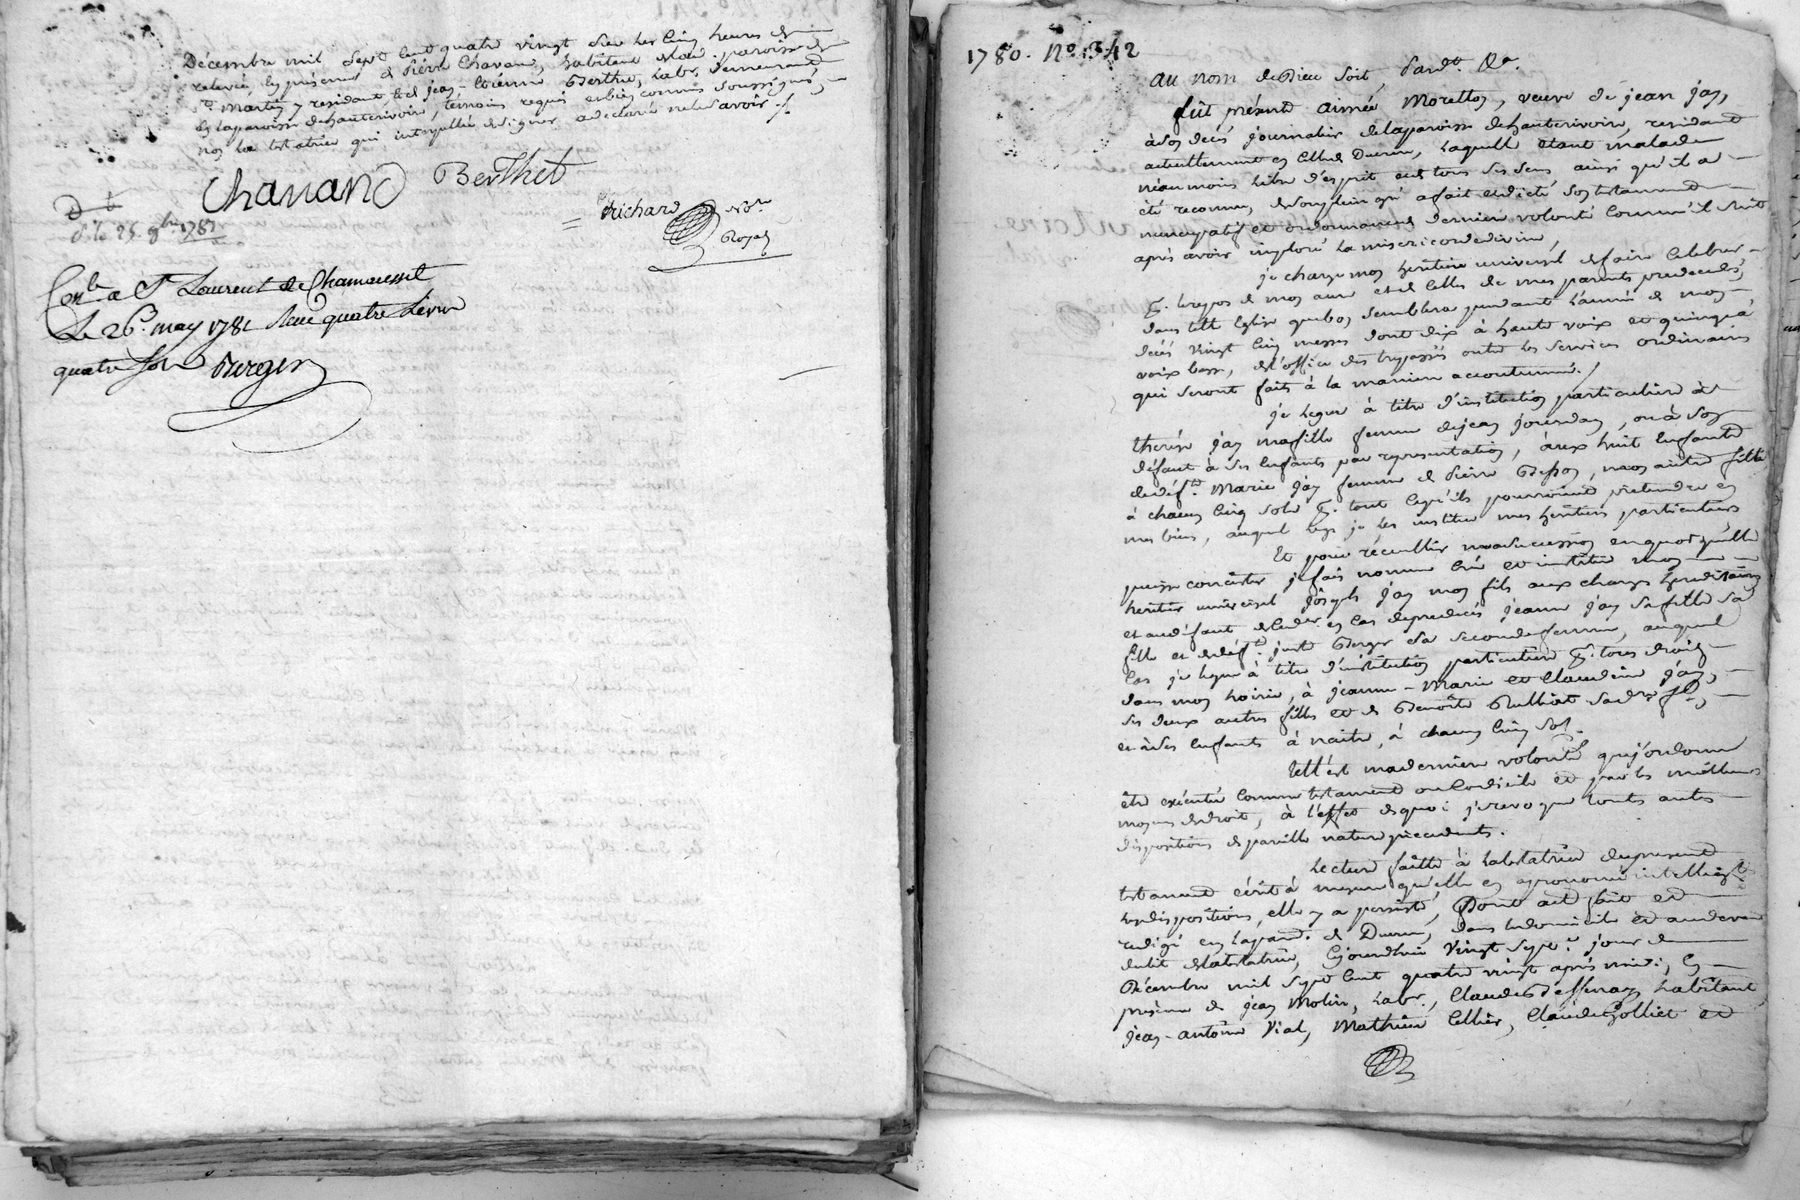 Décembre mil sept cent quatre vingt sur les cinq heures de
relevée, en présence de Pierre Chavand, habitant dud. paroisse de
St. Martin y residant, et de jean-Etienne Berthet, Labr. demeurant
en la paroisse de hauterivoire, témoins requis enbien connus soussignés,
non la testatrice qui interpellée de signer a declaré ne le savoir ./.
Chavand Berthet
Richard Nore.
Royal
d. le 25. 8bre 1787
Contlé a St Laurent de Chamousset
Le 26e. may 1781 Reçu quatre Livres
quatre sols Berger
1780. No. 342
au nom de Dieu soit, pardt. &a.
fut présente aimée Moretton, veuve de jean jay,
à son décès journalier de la paroisse de hauterivoire, residante
actuellement en celle de Duerne, laquelle etant malade
néanmoins libre d'esprit et de tous ses sens ainsi qu'il a
été reconnu, de son plein gré a fait et dicté son testament
nuncupatif et ordonnance de derniere volonté comme il suit
après avoir imploré la misericorde divine,
je charge mon heritier universel de faire celebrer
pr. le repos de mon ame et de celles de mes parents predecedés,
dans telle Eglise que bon semblera pendant l'année de mon
decès vingt cinq messes dont dix à haute voix et quinze à
voix basse, et l'office des trepassés outre les services ordinaires
qui seront faits à la maniere accoutumée./
je legue à titre d'institution particuliere à
therèse jay ma fille femme de jean jourdan, ou à son
défaut à ses enfants par représentation, aux huit enfants
de déf.te Marie jay femme de Pierre Besson, mon autre fille
à chacun cinq sols pr. tout ce qu'ils pourroient pretendre en
mes biens, auquel legs je les institue mes héritiers particuliers
Et pour récueillir ma succession en quoi qu'elle
puisse consister je fais nomme crée et institue mon
heritier universel joseph jay mon fils aux charges hereditaires
et au défaut de ce der. en cas de predecès jeanne jay sa fille
fille et de déf.te Berger sa seconde femme, auquel
cas je legue à titre d'institution particuliere pr. tous droits
dans mon hoirie, à jeanne-Marie et Claudine jay,
ses deux autres filles et de Benoîte Rulliat sa
et à ses enfants à naitre, à chacun cinq sols.
telle est ma derniere volonté que j'ordonne
être exécutée comme testament ou Codicile et par les meilleurs
moyens de droit, à l'effet de quoi je revoque toutes autres
dispositions de pareille nature précedentes.
Lecture faitte à la testatrice du present
testament écrit à mesure qu'elle en a prononcé intelligt.
les dispositions, elle y a persisté, Dont acte fait et
redigé en la par. de Duerne, dans le domicile et au devant
du lit de la testatrice, Cejourdhuy vingt sept.e jour de
Décembre mil sept cent quatre vingt après midi, en
présence de jean Molin, Labr., Claude habitant,
jean-antoine Vial, Mathieu Cellier, Claude jolliet et